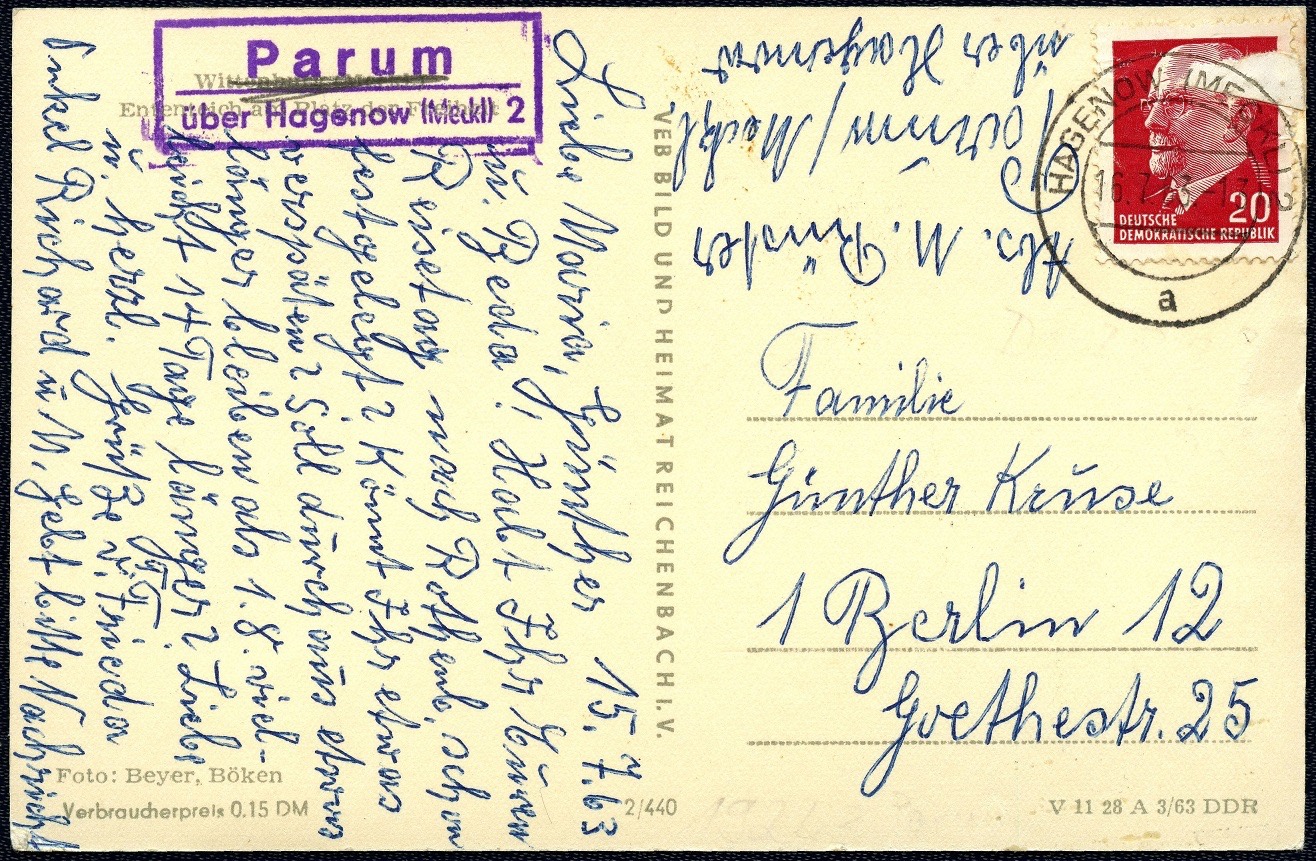 Parum
über Hagenow (Meckl) 2
Wittenburg (Meckl)
Ententeich am Platz der Freiheit
15.7.63
Liebe Maria, Günther
u. Beda! Habt Ihr Euren
Reisetag nach Rothenb. schon
festgelegt? Könnt Ihr etwas
verspäten? Soll durchaus etwas
länger bleiben als 1.8. viel-
leicht 14 Tage länger? Liebe
u. herzl. Grüße v. Frieda
Onkel Richard u. M. Gebt bitte Nachricht
Foto: Beyer, Böken
Verbraucherpreis 0.15 DM
VEB BILD UND HEIMAT REICHENBACH I. V.
2/440
Abs. M.
Parum/Meckl
über Hagenow
HAGENOW (MECKL) 2
16.7.63-13
a
20
DEUTSCHE
DEMOKRATISCHE REPUBLIK
Familie
Günther Kruse
1 Berlin 12
Goethestr. 25
V 11 28 A 3/63 DDR